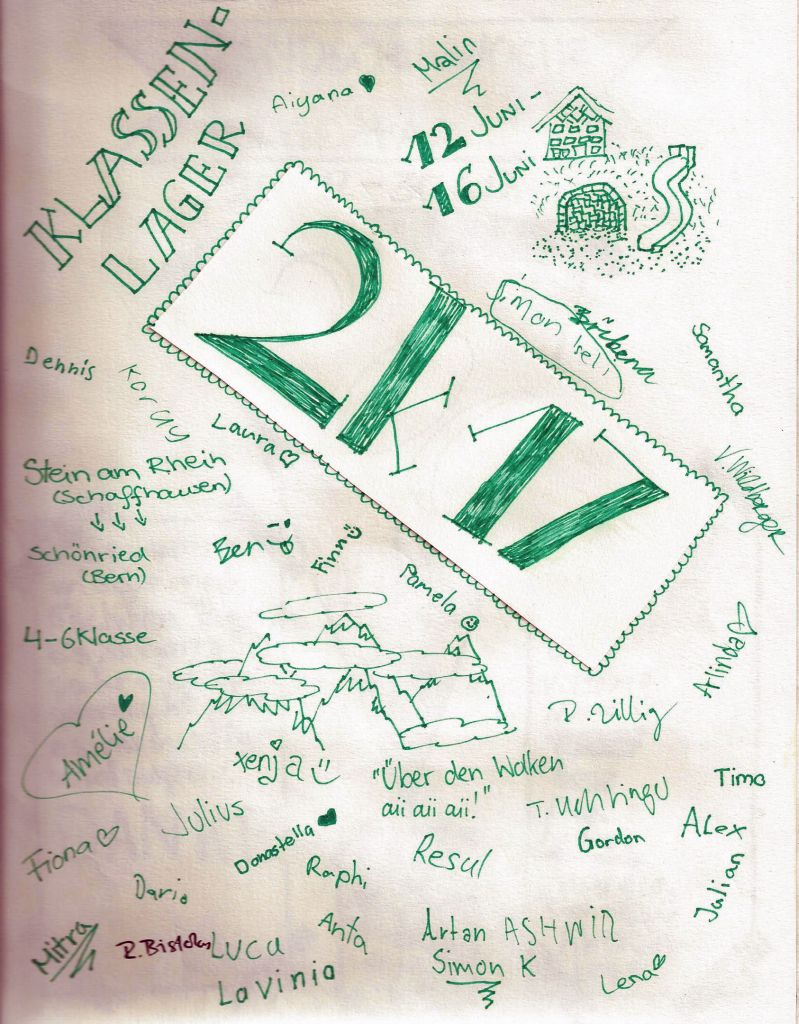 KLASSEN-
LAGER
Aiyana
Malin
12 JUNI -
16 JUNI
2k17
Samantha
Dennis
Laura
Stein am Rhein
(Schaffhausen)
Schönried
(Bern)
Ben
Finn
Pamela
4-6 Klasse
Arlinda
Amélie
Xenja
"Über den Wolken
aii aii aii!"
Timo
Julius
Gordon
ALex
Fiona
Donastella
Raphi
Resul
Julian
Dario
Mitra
LUCA
Anta
Artan
ASHWIN
Simon K
Lavinia
Lena